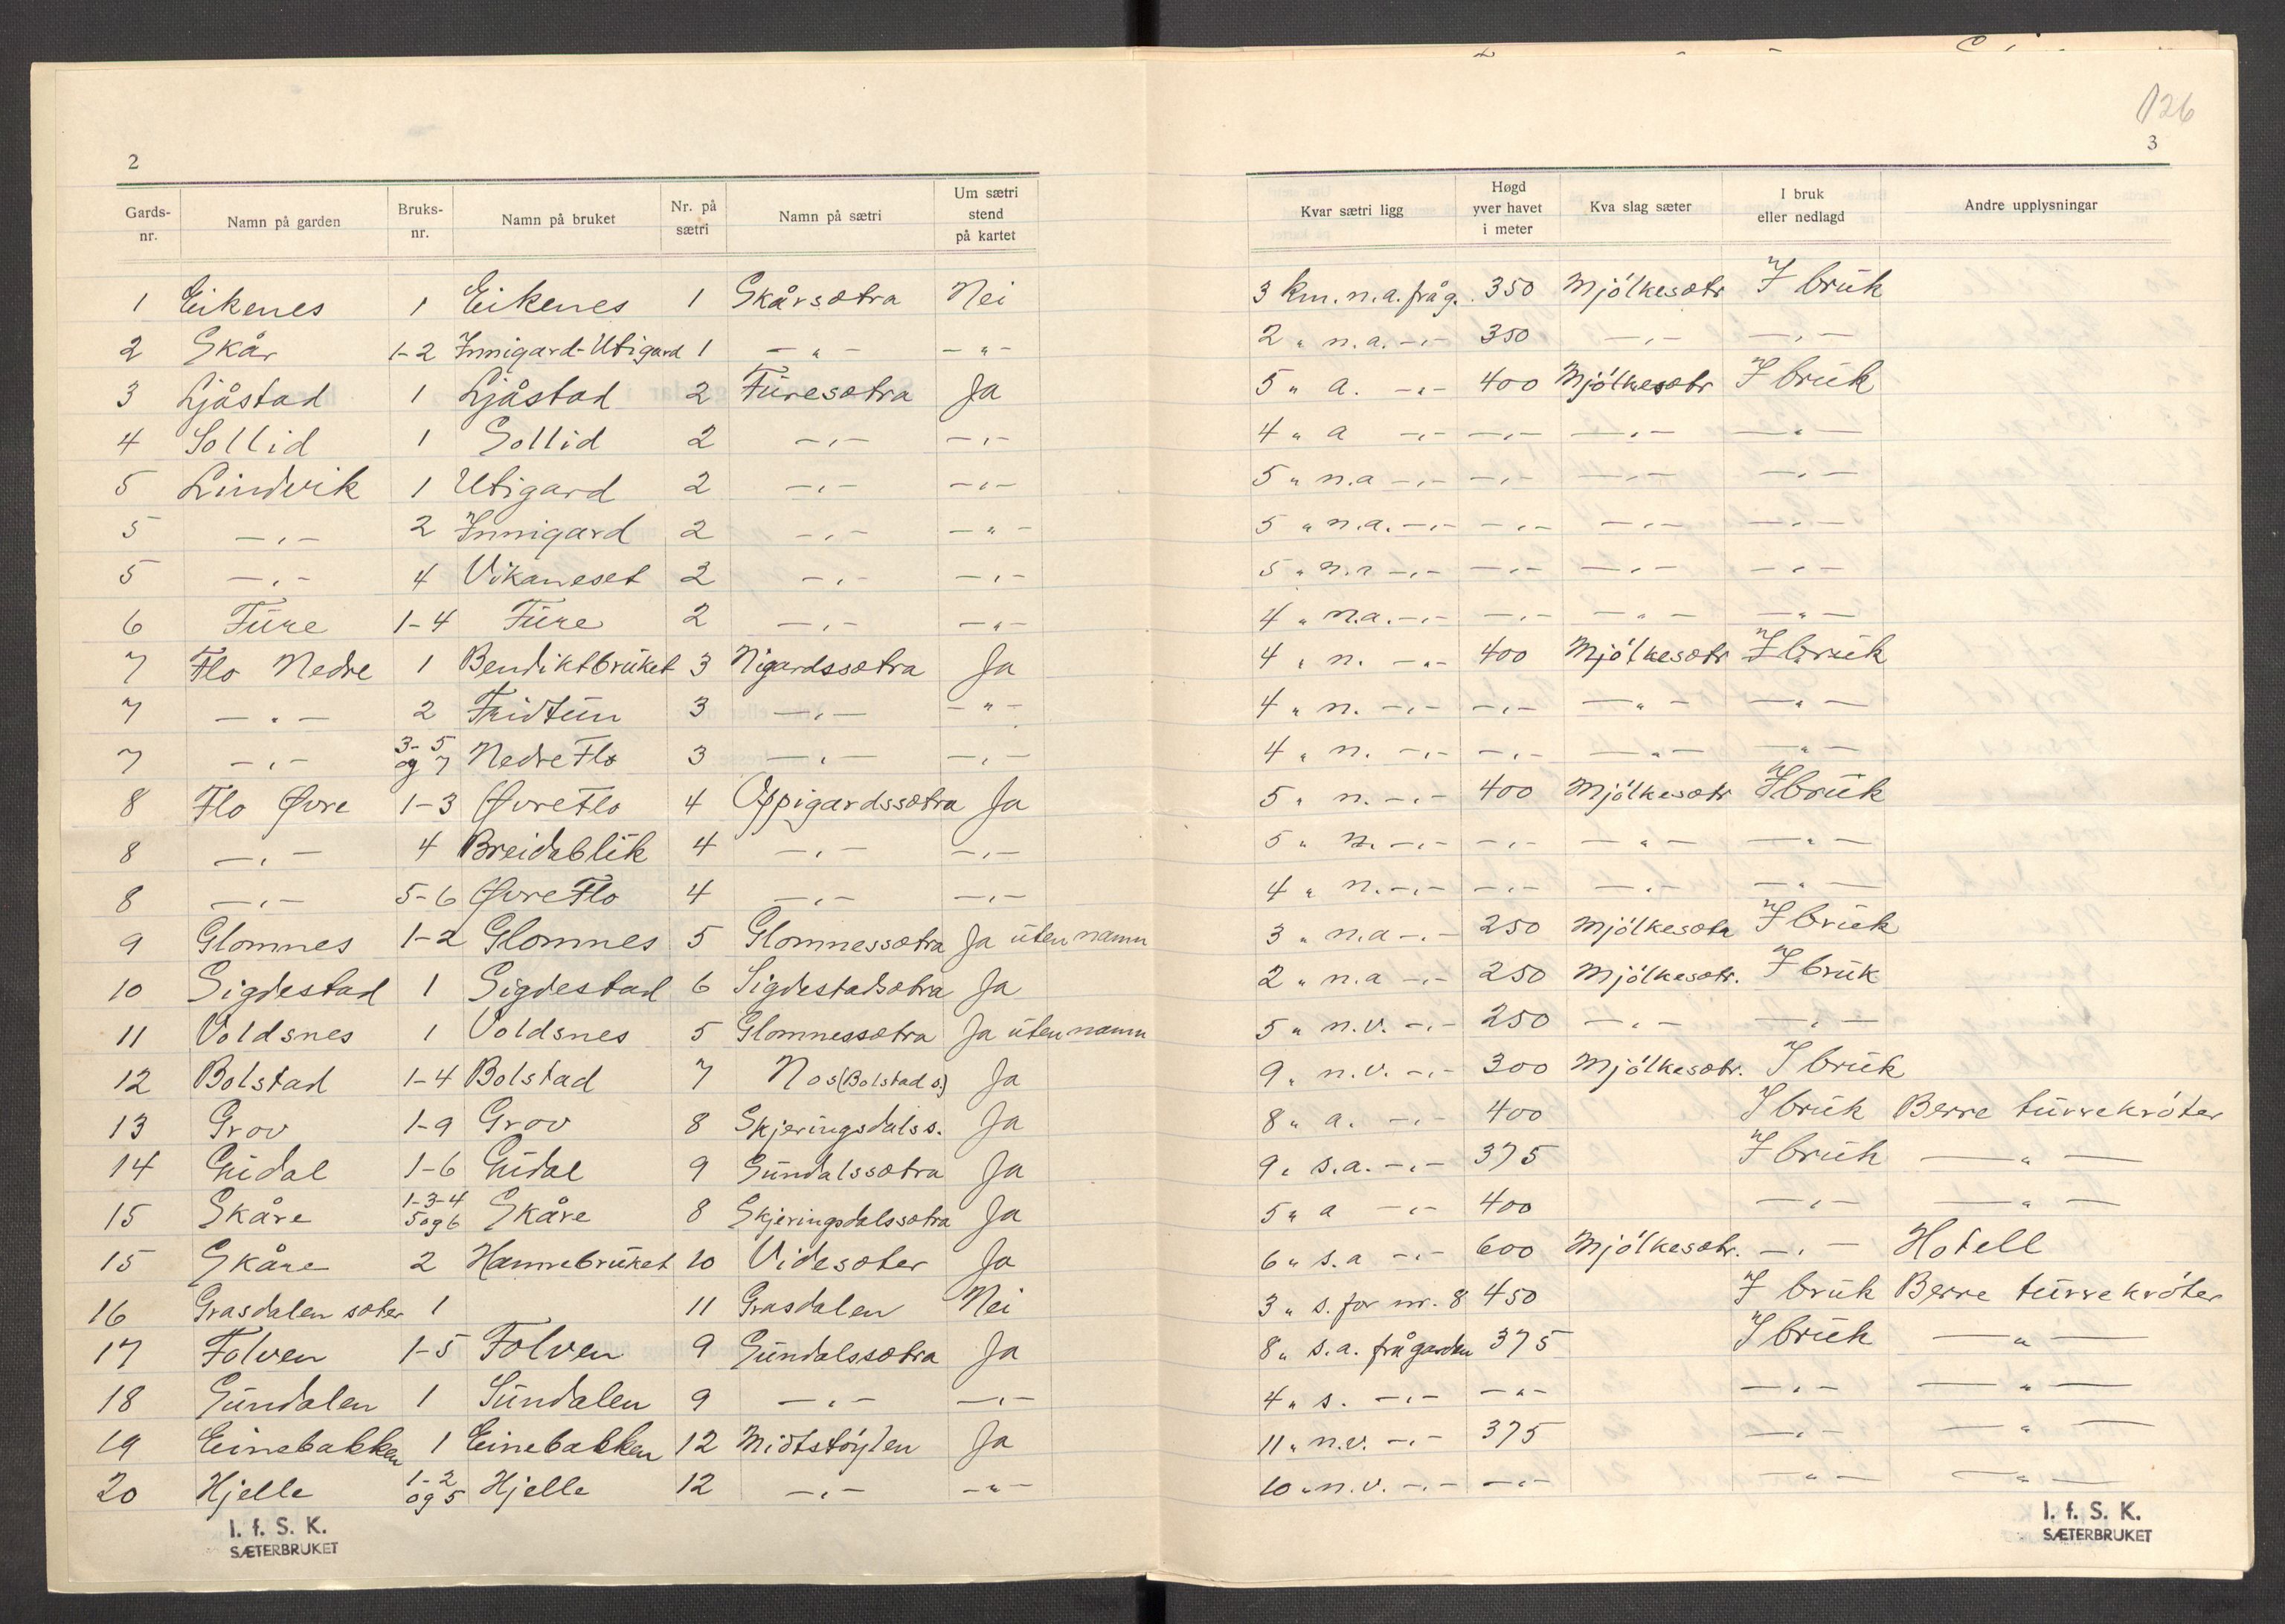 126
2
3
Gards-nr. Namn på garden Bruks-nr. Namn på bruket Nr. på sætri Namn på sætri Um sætri stend på kartet Kvar sætri ligg Høgd yver havet i meter Kva slag sæter I bruk eller nedlagd Andre upplysningar
1 Eikenes 1 Eikenes 1 Skårsætra Nei 3 km. n.a. frå g. 350 Mjólkesætr I brŭk
2 Skår 1-2 Innigard-Utigard 1 -„- -„- 2 „ n.a. -„- 350 -„- -„-
3 Ljåstad 1 Ljåstad 2 Fŭresætra Ja 5 „ a. -„- 400 Mjólkesætr I brŭk
4 Sollid 1 Sollid 2 -„- -„- 4 „ a -„- -„- -„- -„-
5 Lindvik 1 Utigard 2 -„- -„- 5 „ n.a -„- -„- -„- -„-
5 -„- 2 Innigard 2 -„- -„- 5 „ n.a. -„- -„- -„- -„-
5 -„- 4 Vikaneset 2 -„- -„- 5 „ n.a -„- -„- -„- -„-
6 Fŭre 1-4 Fŭre 2 -„- -„- 4 „ n.a. -„- -„- -„- -„-
7 Flo Nedre 1 Bendiktbrŭket 3 Nigardssætra Ja 4 „ n. -„- 400 Mjólkesætr I brŭk
7 -„- 2 Fridtŭn 3 -„- -„- 4 „ n. -„- -„- -„- -„-
7 -„- 3-5 og 7 Nedre Flo 3 -„- -„- 4 „ n. -„- -„- -„- -„-
8 Flo Øvre 1-3 Øvre Flo 4 Oppigardssætra Ja 5 „ n. -„- 400 Mjólkesætr I brŭk
8 -„- 4 Breidablik 4 -„- -„- 5 „ n. -„- -„- -„- -„-
8 -„- 5-6 Øvre Flo 4 -„- -„- 4 „ n. -„- -„- -„- -„-
9 Glomnes 1-2 Glomnes 5 Glomnessætra Ja ŭten namn 3 „ n.a -„- 250 Mjólkesætr I brŭk
10 Sigdestad 1 Sigdestad 6 Sigdestadsætra Ja 2 „ n.a -„- 250 Mjólkesætr. I brŭk
11 Voldsnes 1 Voldsnes 5 Glomnessætra Ja ŭten namn 5 „ n.v. -„- 250 -„- -„-
12 Bolstad 1-4 Bolstad 7 Nos (Bolstad s.) Ja 9 „ n.v. -„- 300 Mjólkesætr. I brŭk
13 Grov 1-9 Grov 8 Skjeringsdals s. Ja 8 „ a. -„- 400 I brŭk Berre tŭrrekróter
14 Guidal 1-6 Guidal 9 Sŭndalssætra Ja 9 „ s.a. -„- 375 I brŭk -„-
15 Skåre 1-3-4 5 og 6 Skåre 8 Skjeringsdalssætra Ja 5 „ a -„- 400 -„- -„-
15 Skåre 2 Hannebrŭket 10 Videsæter Ja 6 „ s.a -„- 600 Mjólkesætr. -„- Hotell
16 Grasdalen sæter 1 11 Grasdalen Nei 3 „ s. for nr. 8 450 I brŭk Berre tŭrrekróter
17 Folven 1-5 Folven 9 Sŭndalssætra Ja 8 „ s.a. frå garden 375 I brŭk -„-
18 Sŭndalen 1 Sŭndalen 9 -„- -„- 4 „ s. -„- -„- -„- -„-
19 Einebakken 1 Einebakken 12 Midtstóylen Ja 11 „ n.v. -„- 375 -„- -„-
20 Hjelle 1-2 og 5 Hjelle 12 -„- -„- 10 „ n.v. -„- -„- -„- -„-
I. f. S. K.
SÆTERBRUKET
I. f. S. K.
SÆTERBRUKET